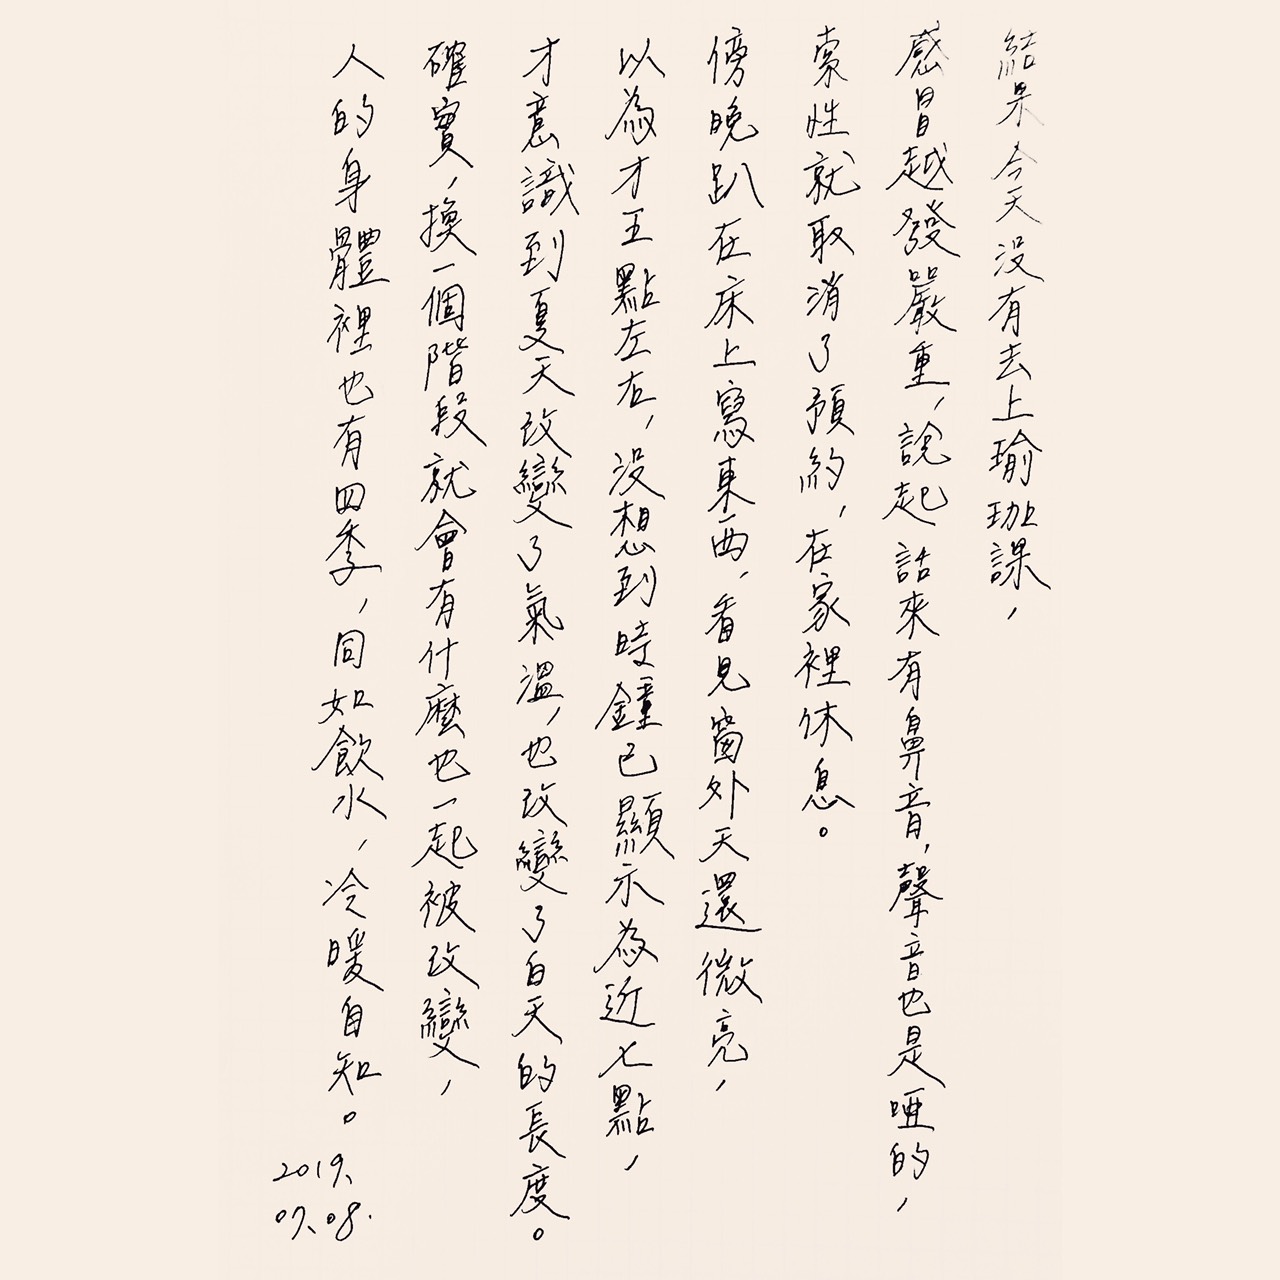 結果今天沒有去上瑜珈課，
感冒越發嚴重，說起話來有鼻音，聲音也是啞的，
索性就取消了預約，在家裡休息。
傍晚趴在床上寫東西，看見窗外天還微亮，
以為才五點左右，沒想到時鐘已顯示為近七點，
才意識到夏天改變了氣溫，也改變了白天的長度。
確實，換一個階段就會有什麼也一起被改變，
人的身體裡也有四季，同如飲水，冷暖自知。
2019.
07.08.